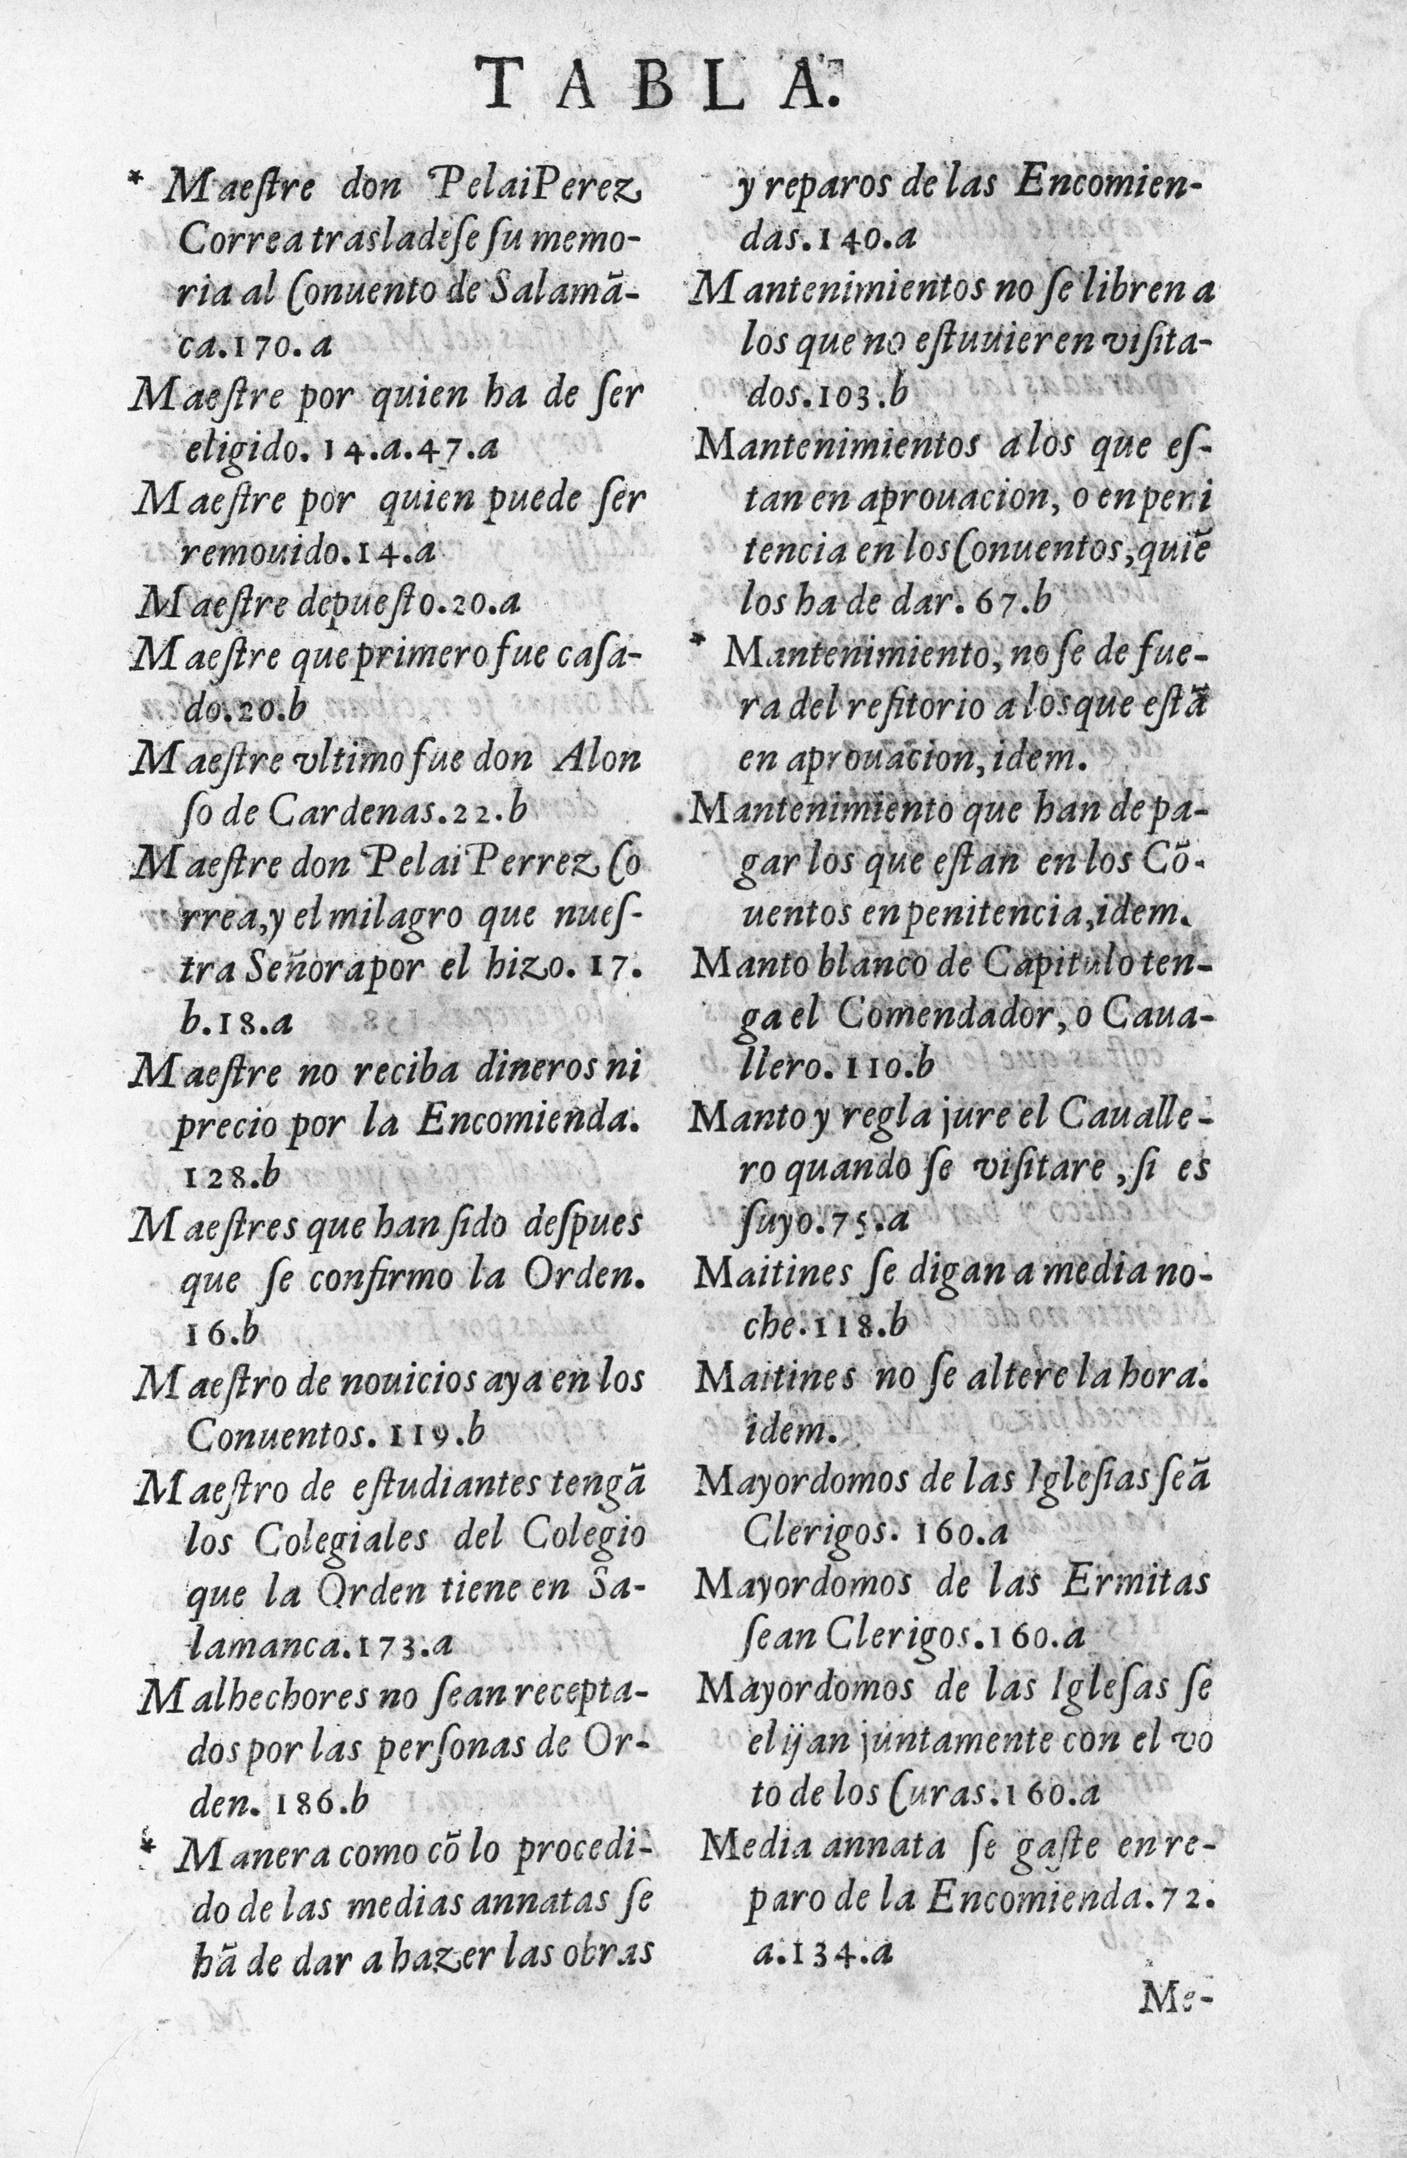 TABLA.
* Maeſtre don Pelai Perez
Correa trasladeſe ſu memo-
ria al Conuento de Salamã-
ca.170.a
Maeſtre por quien ha de ſer
eligido. 14.a.47.a
Maeſtre por quien puede ſer
remouido.14.a
Maeſtre depueſto.20.a
Maeſtre que primero fue caſa-
do.20.b
Maeſtre vltimo fue don Alon
ſo de Cardenas.22.b
Maeſtre don Pelai Perrez Co
rrea,y el milagro que nueſ-
tra Señora por el hizo. 17.
b.18.a
Maeſtre no reciba dineros ni
precio por la Encomienda.
128.b
Maeſtres que han ſido deſpues
que ſe confirmo la Orden.
16.b
Maeſtro de nouicios aya en los
Conuentos. 119.b
Maeſtro de eſtudiantes tengã
los Colegiales del Colegio
que la Orden tiene en Sa-
lamanca.173.a
Malhechores no ſean recepta-
dos por las perſonas de Or-
den. 186.b
* Manera como cõ lo procedi-
do de las medias annatas ſe
hã de dar a hazer las obras
y reparos de las Encomien-
das.140.a
Mantenimientos no ſe libren a
los que no eſtuuieren viſita-
dos.103.b
Mantenimientos a los que eſ-
tan en aprouacion, o en peni
tencia en los Conuentos,quiẽ
los ha de dar. 67.b
* Mantenimiento, no ſe de fue-
ra del refitorio a los que eſtã
en aprouacion, idem.
Mantenimiento que han de pa-
gar los que eſtan en los Cõ-
uentos en penitencia,idem.
Manto blanco de Capitulo ten-
ga el Comendador, o Caua-
llero. 110.b
Manto y regla jure el Caualle-
ro quando ſe viſitare, ſi es
ſuyo.75.a
Maitines ſe digan a media no-
che.118.b
Maitines no ſe altere la hora.
idem.
Mayordomos de las Igleſias ſeã
Clerigos. 160.a
Mayordomos de las Ermitas
ſean Clerigos.160.a
Mayordomos de las Igleſas ſe
elijan juntamente con el vo
to de los Curas.160.a
Media annata ſe gaſte en re-
paro de la Encomienda.72.
a.134.a
Me-